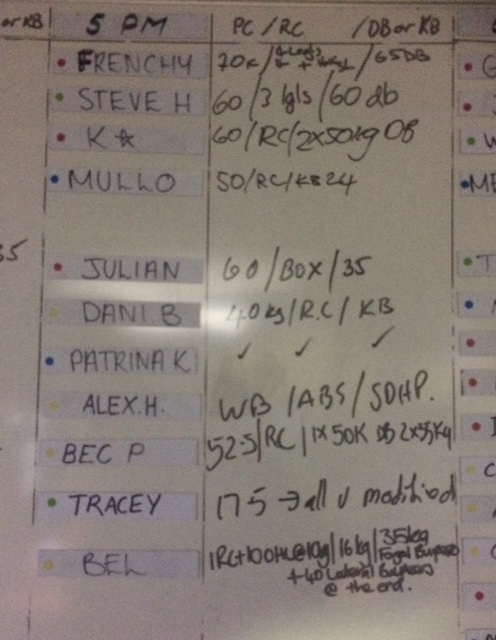 or KB 5 PM PC / RC / DB or KB
FRENCHY 70K / / 65DB
STEVE H 60 / 3 lgls / 60 db
K ☆ 60 / RC / 2x50kg DB
MULLO 50 / RC / KB 24
35
JULIAN 60 / BOX / 35
DANI B 40 kg / R.C / KB
PATRINA K ✓ ✓ ✓
ALEX.H. WB / ABS / SDHP.
BEC P 52.5 / RC / 1x 50K DB 2x55Kg
TRACEY 17.5 → all v modified
BEL 1RC+100HL@10kg | 16kg | 35kg
Burpees
+ 40 Lateral Burpees
@ the end.